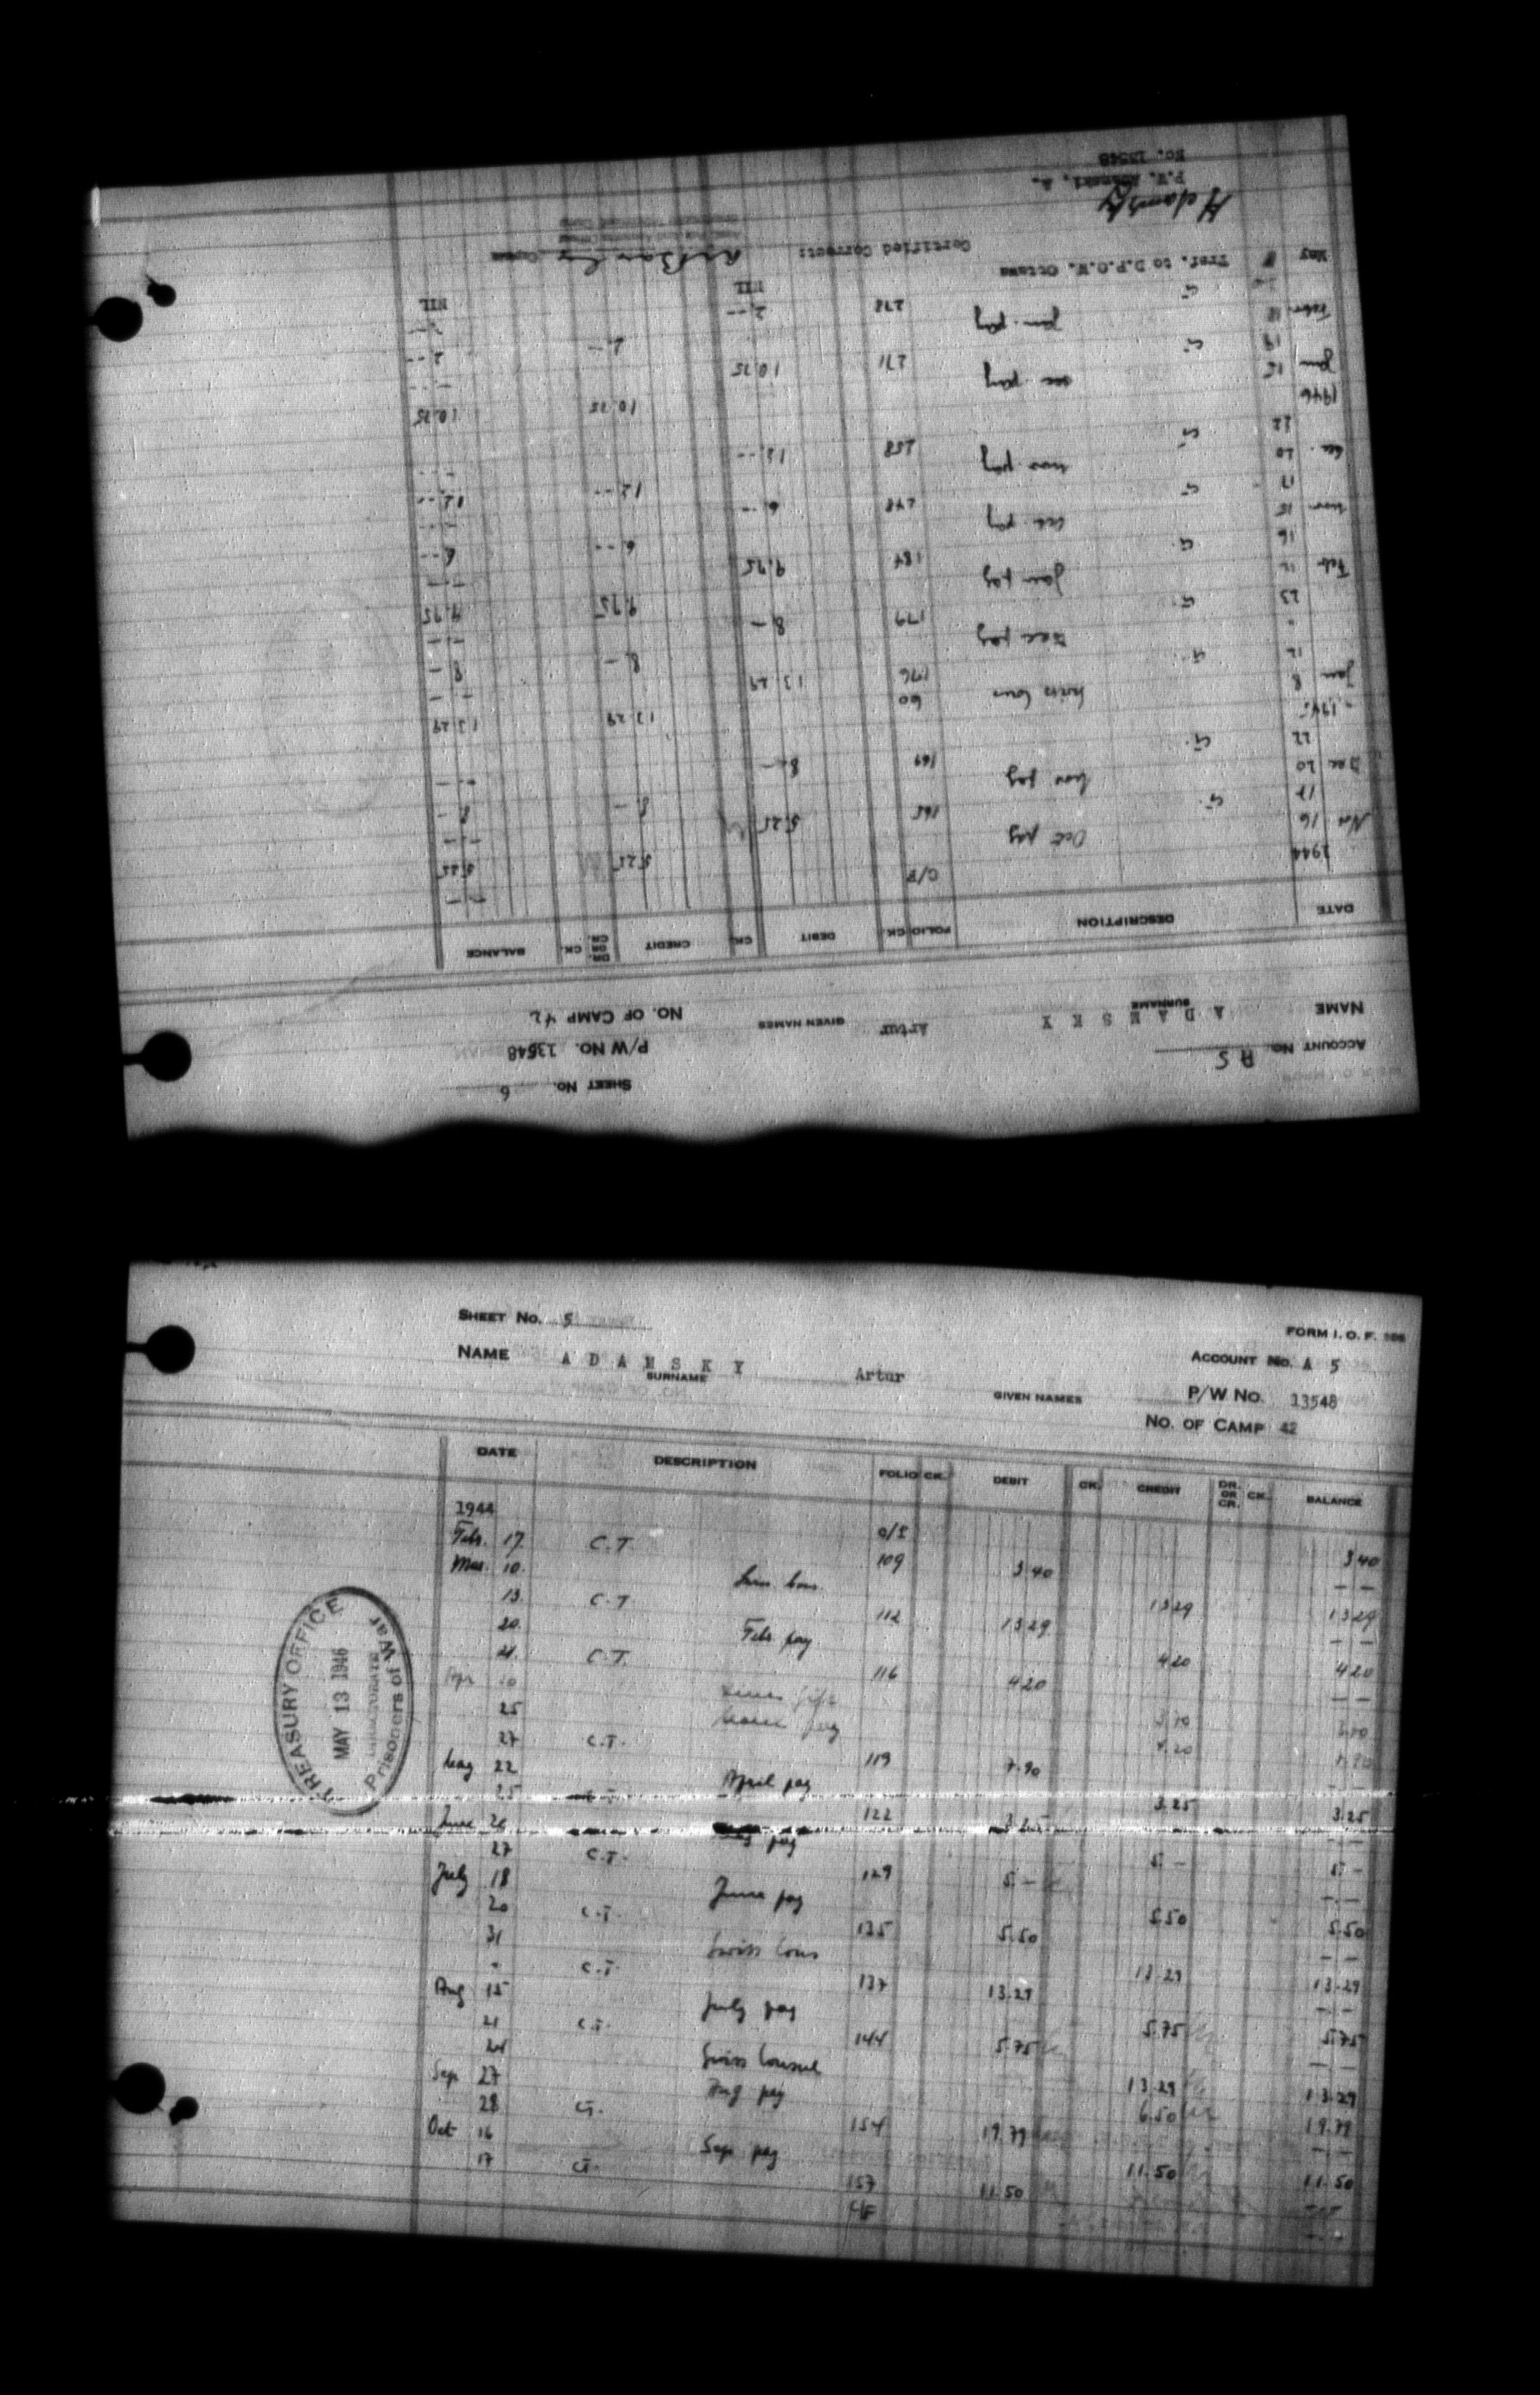 SHEET NO. 6
ACCOUNT NO. A 5
P/W NO. 13548
NAME A D A M S K Y Artur
SURNAME GIVEN NAMES
NO. OF CAMP 42
DATE DESCRIPTION FOLIO CK. DEBIT CK. CREDIT DR. OR CR. CK. BALANCE
1944 C/F - -
Nov 16 Oct pay 5.25 5.25
17 CT. 165 5.25 - -
Dec 20 Nov pay 8 - 8 -
22 CT. 169 8 - - -
1945
Jan 8 Swiss Cons 60 13.29 13.29
12 CT. 176 13.29 - -
" Dec pay 8 - 8 -
23 CT. 179 8 - - -
Feb 12 Jan pay 9.75 9.75
16 CT. 184 9.75 - -
Nov 15 Oct pay 6 - - 6 - -
17 CT 248 6 - - - -
Dec. 20 Nov pay 12 - - 12 - -
22 CT 258 12 - - - -
1946
Jan 15 Dec pay 10.75 10.75
19 CT 271 10.75 - -
Febr. 18 Jan. pay 2 - 2 - -
CT 278 2 - - - -
May Trsf. to D.P.O.W. Ottawa NIL NIL
Certified Correct: Captain
Adamsky
P.W. A.
No. 13548
SHEET NO. 5
FORM I. O. F.
NAME A D A M S K Y Artur
SURNAME GIVEN NAMES
ACCOUNT NO. A 5
P/W NO. 13548
NO. OF CAMP 42
DATE DESCRIPTION FOLIO CK. DEBIT CK. CREDIT DR. OR CR. CK. BALANCE
1944 3 40
Feb. 17 C.T. 109 3 40 - -
Mar. 10. 13 29 13 29
13. C.T 112 13 29 - -
20. Feb. pay 4 20 4 20
21. C.T. 116 4 20 - -
Apr 10
25 pay 4.20
27 C.T. 119 7.90 - -
May 22 April pay 3.25 3.25
25 C.T. 122 3.25 - -
June 26 pay 5. - 5. -
27 C.T. 129 5. - - -
July 18 June pay 5.50 5.50
20 C.T. 135 5.50 - -
31 Swiss Cons 13.29 13.29
" C.T. 137 13.29 - -
Aug 15 July pay 5.75 5.75
21 C.T. 144 5.75 - -
24 Swiss Consul 13.29 13.29
Sep 27 Aug pay 6.50 19.79
28 CT. 154 19.79 - -
Oct 16 Sep pay 11.50 11.50
17 CT. 157 11.50
C/F - -
TREASURY OFFICE
MAY 13 1946
DIRECTORATE
Prisoners of War